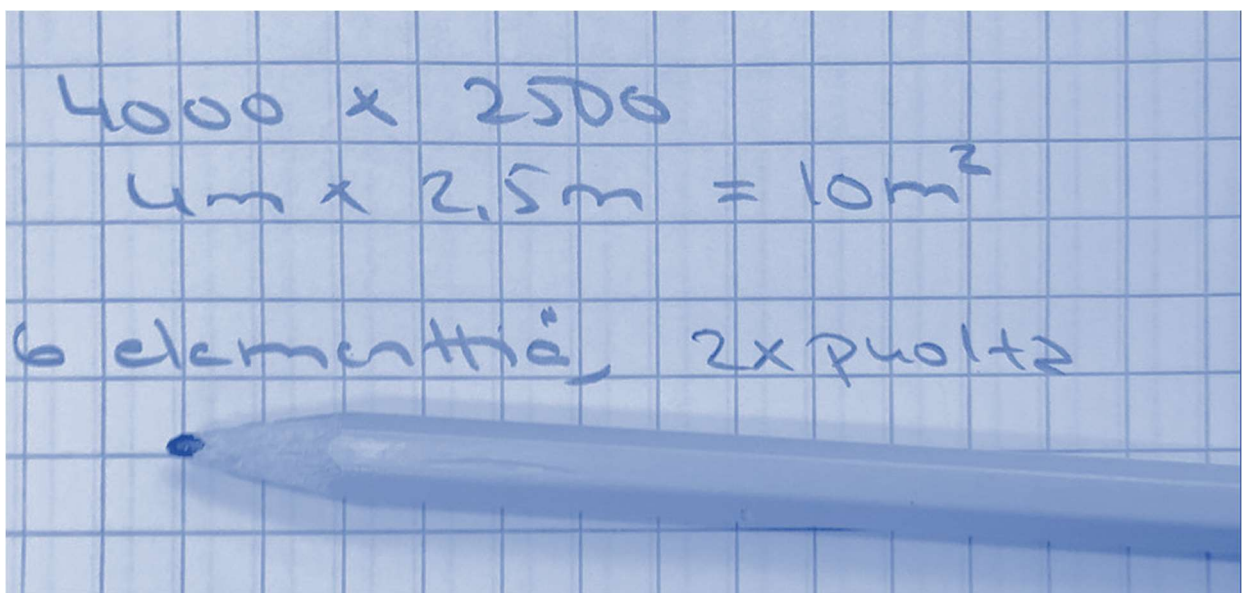 4000 x 2500
4m x 2,5m = 10m²
6 elementtiä, 2x puolta